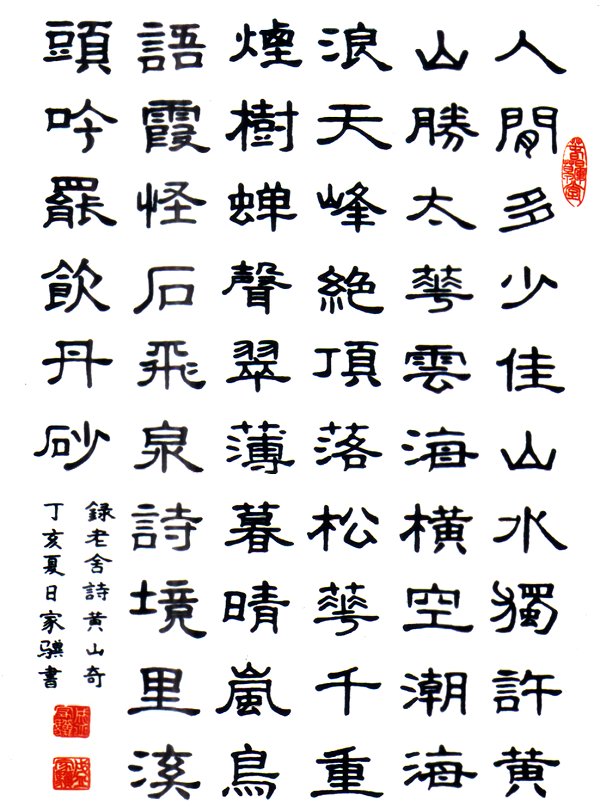 人閒多少佳山水獨許黃
山勝太華雲海橫空潮海
浪天峰絕頂落松華千重
煙樹蟬聲翠薄暮晴嵐鳥
語霞怪石飛泉詩境里溪
頭吟罷飲丹砂
錄老舍詩黃山奇
丁亥夏日家書